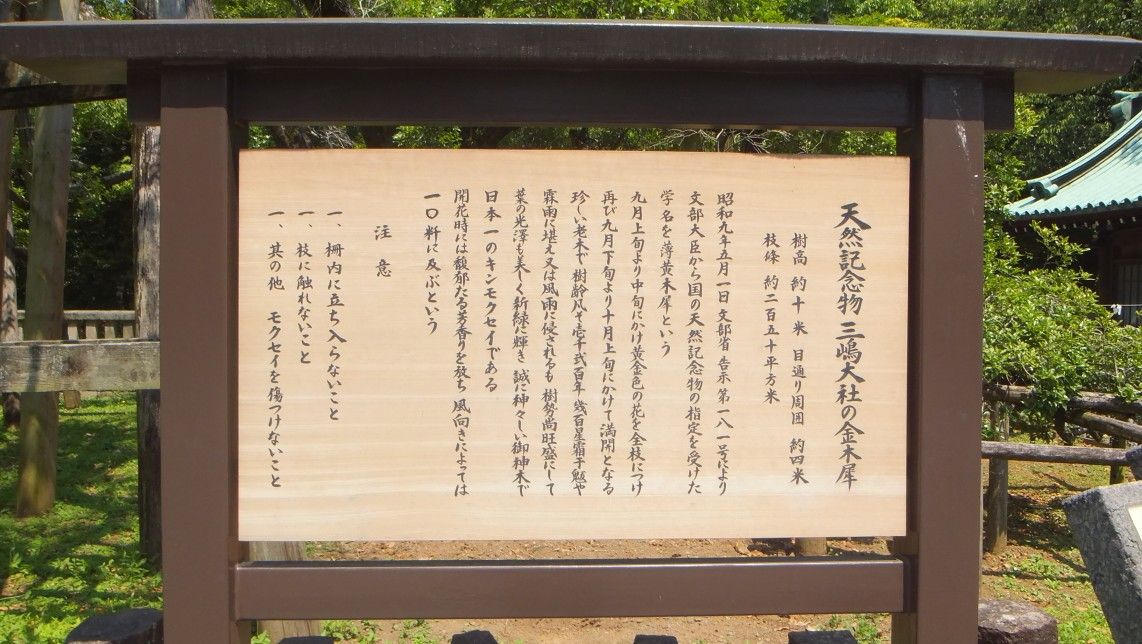 天然記念物 三嶋大社の金木犀
樹高 約十米 目通り周囲 約四米
枝條 約二百五十平方米
昭和九年五月一日 文部省 告示 第一八一号により
文部大臣から国の天然記念物の指定を受けた
学名を薄黄木犀という
九月上旬より中旬にかけ黄金色の花を全枝につけ
再び九月下旬より十月上旬にかけて満開となる
珍しい老木で 樹齢凡そ壱千弐百年 幾百星霜干魃や
霖雨に堪え又は風雨に侵されるも 樹勢尚旺盛にして
葉の光澤も美しく新緑に輝き 誠に神々しい御神木で
日本一のキンモクセイである
開花時には馥郁たる芳香りを放ち 風向きによっては
一〇粁に及ぶという
注意
一、柵内に立ち入らないこと
一、枝に触れないこと
一、其の他 モクセイを傷つけないこと